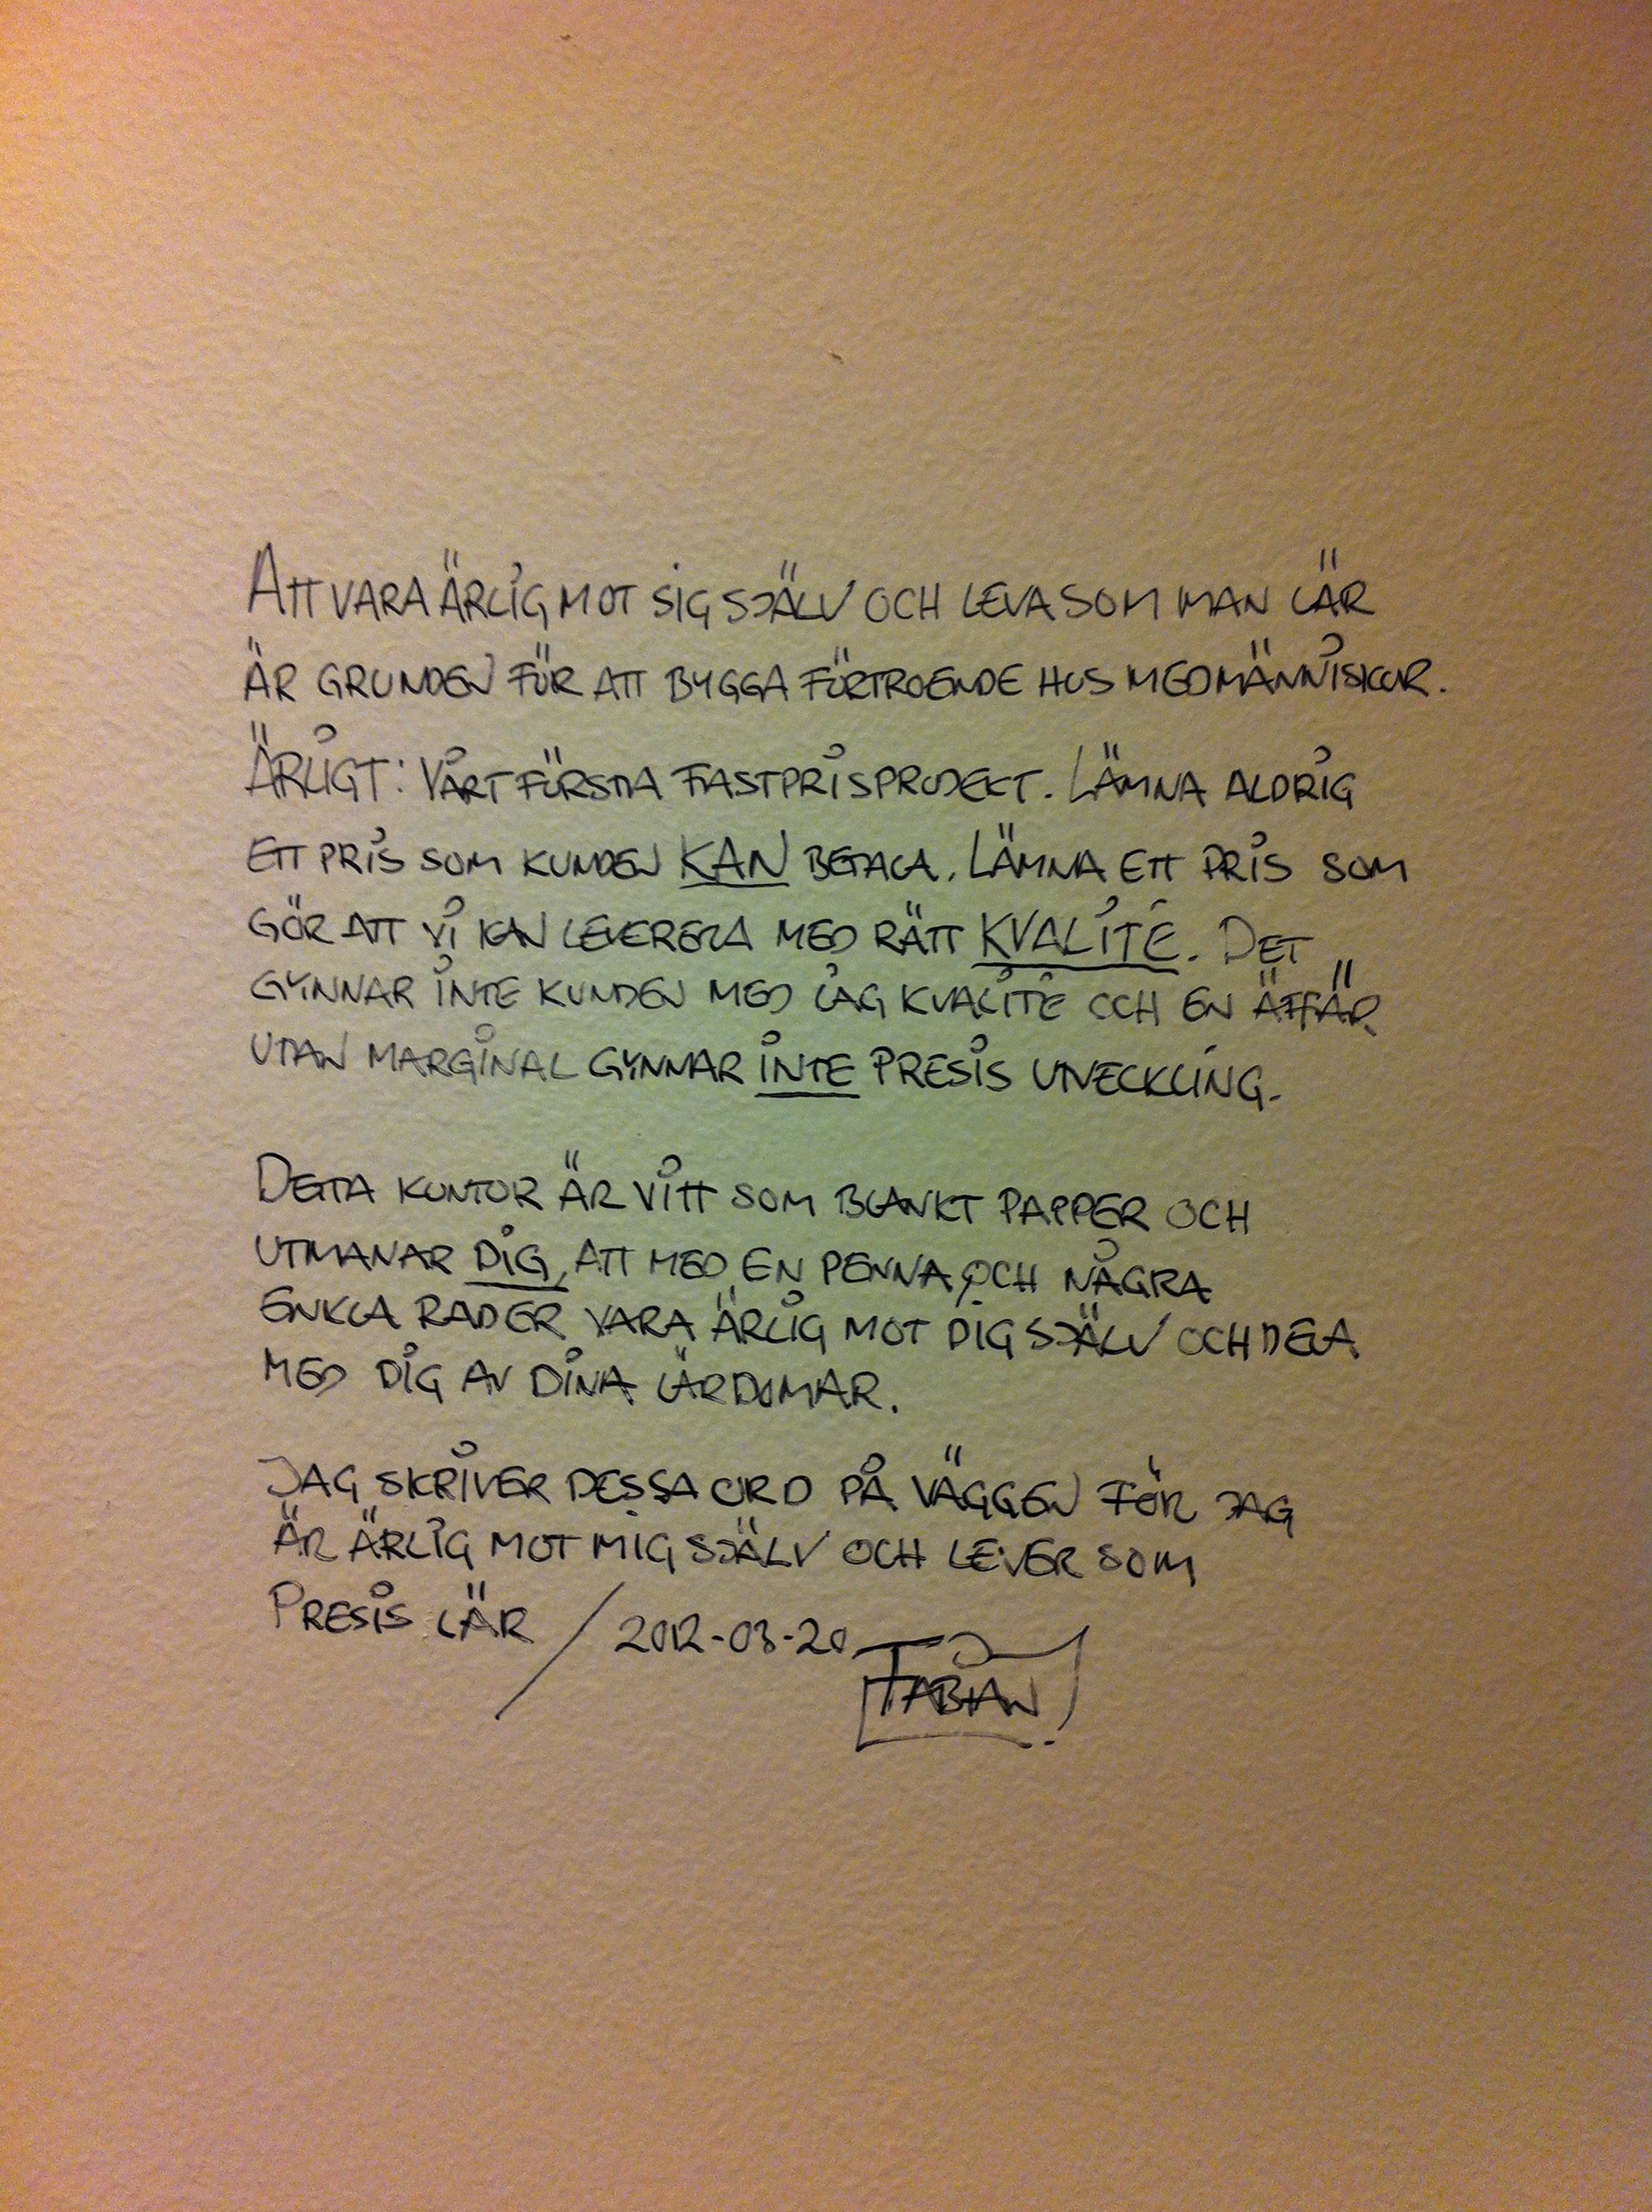 ATT VARA ÄRLIG MOT SIG SJÄLV OCH LEVA SOM MAN LÄR
ÄR GRUNDEN FÖR ATT BYGGA FÖRTROENDE HOS MEDMÄNNISKOR.
ÄRLIGT: VÅRT FÖRSTA FASTPRISPROJEKT. LÄMNA ALDRIG
ETT PRIS SOM KUNDEN KAN BETALA. LÄMNA ETT PRIS SOM
GÖR ATT VI KAN LEVERERA MED RÄTT KVALITÉ. DET
GYNNAR INTE KUNDEN MED LÅG KVALITÉ OCH EN ÄFFÄR
UTAN MARGINAL GYNNAR INTE PRESIS UTVECKLING.
DETTA KONTOR ÄR VITT SOM BLANKT PAPPER OCH
UTMANAR DIG, ATT MED EN PENNA OCH NÅGRA
ENKLA RADER VARA ÄRLIG MOT DIG SJÄLV OCH DELA
MED DIG AV DINA LÄRDOMAR.
JAG SKRIVER DESSA ORD PÅ VÄGGEN FÖR JAG
ÄR ÄRLIG MOT MIG SJÄLV OCH LEVER SOM
PRESIS LÄR / 2012-03-20
FABIAN